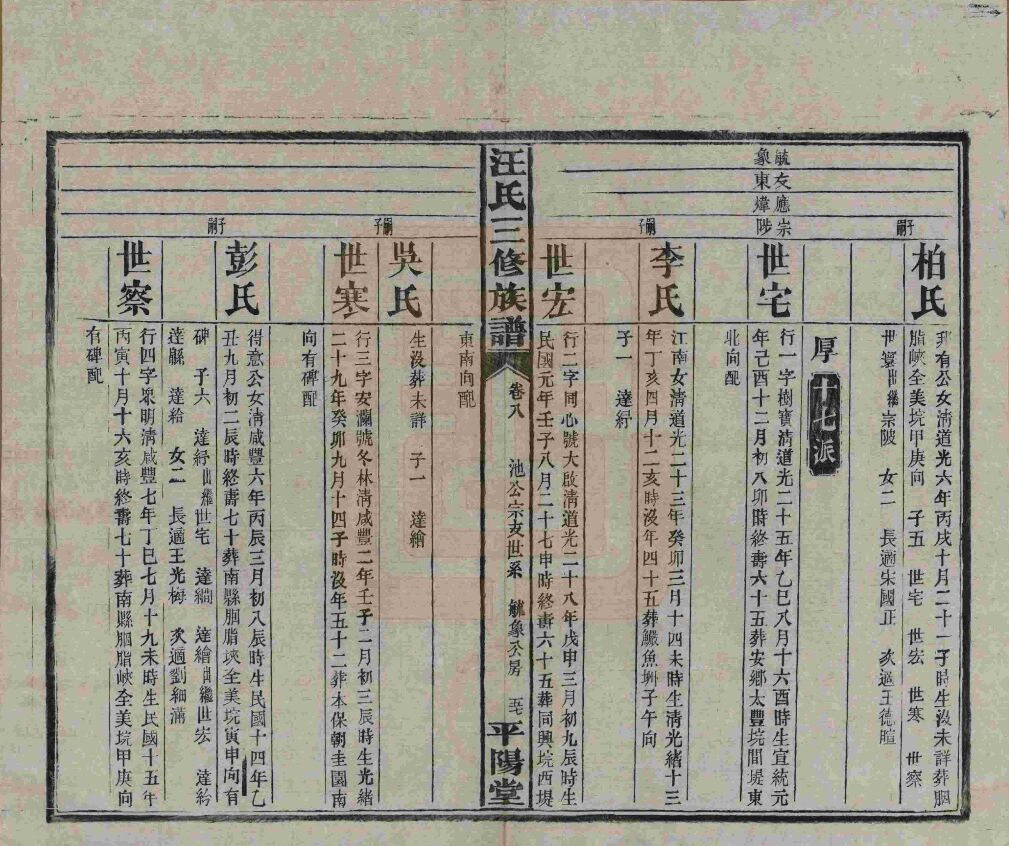 毓友應宗
象東煒陟
嗣子
柏氏
有公女淸道光六年丙戌十月二十一子時生沒未詳葬胭
脂峽全美垸甲庚向　子五　世宅　世宏　世寒　世察
世寰出繼宗陂　女二　長適宋國正　次適王德暄
厚十七派
世宅
行一字樹寶淸道光二十五年乙巳八月十六酉時生宣統元
年己酉十二月初八卯時終壽六十五葬安鄉太豐垸間堤東
北向配
嗣子
李氏
江南女淸道光二十三年癸卯三月十四未時生淸光緒十三
年丁亥四月十二亥時沒年四十五葬鱖魚垇子午向
子一　達紆
世宏
行二字同心號大啟淸道光二十八年戊申三月初九辰時生
民國元年壬子八月二十七申時終壽六十五葬同興垸西堤
東南向配
汪氏三修族譜
卷八
池公宗支世系
毓象公房
平陽堂
嗣子
吳氏
生沒葬未詳　子一　達繪
世寒
行三字安瀾號冬林淸咸豐二年壬子二月初三辰時生光緒
二十九年癸卯九月十四子時沒年五十二葬本保朝圭園南
向有碑配
嗣子
彭氏
得意公女淸咸豐六年丙辰三月初八辰時生民國十四年乙
丑九月初二辰時終壽七十葬南縣胭脂峽全美垸寅甲向有
碑　子六　達紆出繼世宅　達繝　達繪出繼世宏　達紟
達緜　達給　女二　長適王光梅　次適劉細滿
世察
行四字泉明淸咸豐七年丁巳七月十九未時生民國十五年
丙寅十月十六亥時終壽七十葬南縣胭脂峽全美垸甲庚向
有碑配